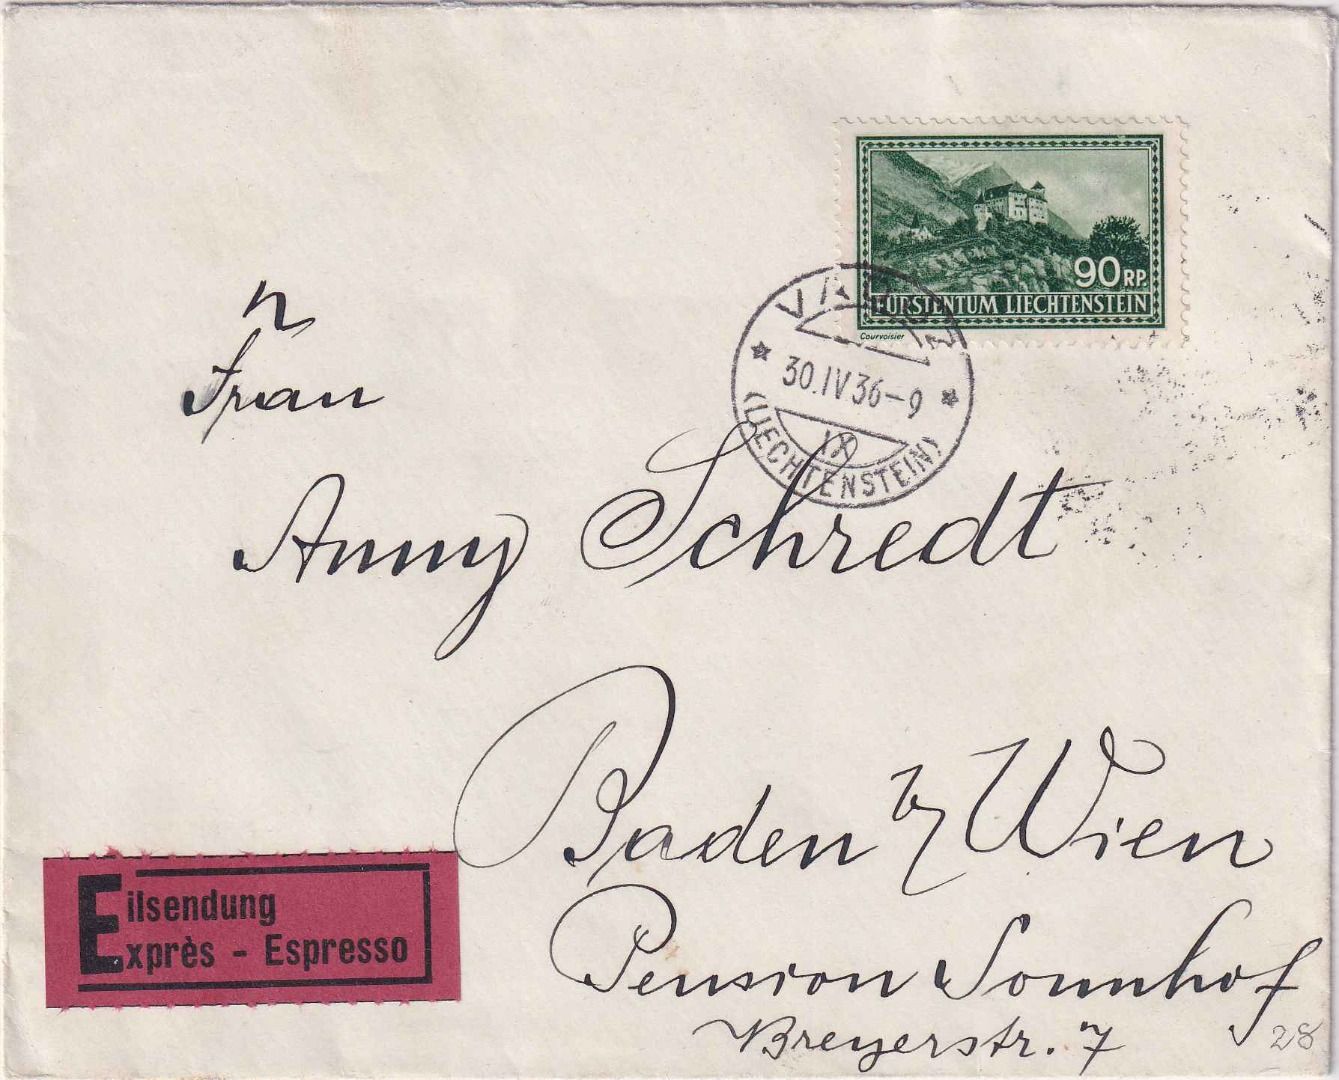 90 RP.
FÜRSTENTUM LIECHTENSTEIN
Courvoisier
VADUZ
30.IV 36-9
(LIECHTENSTEIN)
n
Frau
Anny Schredt
Baden b/ Wien
Pension Sonnhof
Breyerstr. 7
28
Eilsendung
Exprès - Espresso